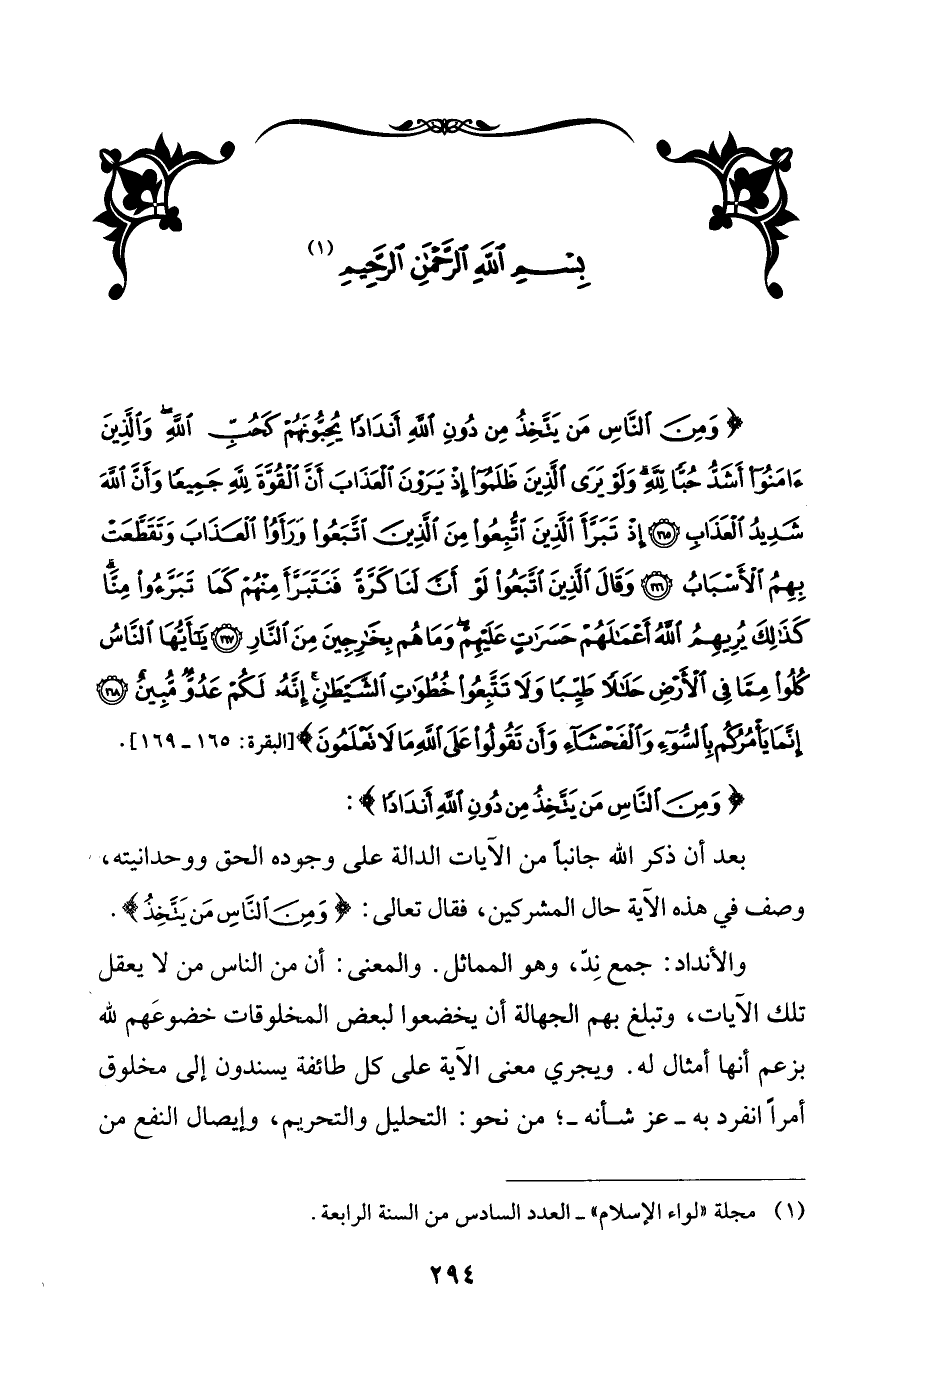 بِسْمِ ٱللَّهِ ٱلرَّحْمَٰنِ ٱلرَّحِيمِ (١)
﴿ وَمِنَ ٱلنَّاسِ مَن يَتَّخِذُ مِن دُونِ ٱللَّهِ أَندَادًا يُحِبُّونَهُمْ كَحُبِّ ٱللَّهِ ۖ وَٱلَّذِينَ
ءَامَنُوٓا۟ أَشَدُّ حُبًّا لِّلَّهِ ۗ وَلَوْ يَرَى ٱلَّذِينَ ظَلَمُوٓا۟ إِذْ يَرَوْنَ ٱلْعَذَابَ أَنَّ ٱلْقُوَّةَ لِلَّهِ جَمِيعًا وَأَنَّ ٱللَّهَ
شَدِيدُ ٱلْعَذَابِ ١٦٥ إِذْ تَبَرَّأَ ٱلَّذِينَ ٱتُّبِعُوا۟ مِنَ ٱلَّذِينَ ٱتَّبَعُوا۟ وَرَأَوُا۟ ٱلْعَذَابَ وَتَقَطَّعَتْ
بِهِمُ ٱلْأَسْبَابُ ١٦٦ وَقَالَ ٱلَّذِينَ ٱتَّبَعُوا۟ لَوْ أَنَّ لَنَا كَرَّةً فَنَتَبَرَّأَ مِنْهُمْ كَمَا تَبَرَّءُوا۟ مِنَّا ۗ
كَذَٰلِكَ يُرِيهِمُ ٱللَّهُ أَعْمَٰلَهُمْ حَسَرَٰتٍ عَلَيْهِمْ ۖ وَمَا هُم بِخَٰرِجِينَ مِنَ ٱلنَّارِ ١٦٧ يَٰٓأَيُّهَا ٱلنَّاسُ
كُلُوا۟ مِمَّا فِى ٱلْأَرْضِ حَلَٰلًا طَيِّبًا وَلَا تَتَّبِعُوا۟ خُطُوَٰتِ ٱلشَّيْطَٰنِ ۚ إِنَّهُۥ لَكُمْ عَدُوٌّ مُّبِينٌ ١٦٨
إِنَّمَا يَأْمُرُكُم بِٱلسُّوٓءِ وَٱلْفَحْشَآءِ وَأَن تَقُولُوا۟ عَلَى ٱللَّهِ مَا لَا تَعْلَمُونَ ﴾ [البقرة: ١٦٥ ـ ١٦٩].
﴿ وَمِنَ ٱلنَّاسِ مَن يَتَّخِذُ مِن دُونِ ٱللَّهِ أَندَادًا ﴾ :
بعد أن ذكر الله جانباً من الآيات الدالة على وجوده الحق ووحدانيته،
وصف في هذه الآية حال المشركين، فقال تعالى: ﴿ وَمِنَ ٱلنَّاسِ مَن يَتَّخِذُ ﴾ .
والأنداد: جمع نِدّ، وهو المماثل. والمعنى: أن من الناس من لا يعقل
تلك الآيات، وتبلغ بهم الجهالة أن يخضعوا لبعض المخلوقات خضوعَهم لله
بزعم أنها أمثال له. ويجري معنى الآية على كل طائفة يسندون إلى مخلوق
أمراً انفرد به ـ عز شأنه ـ؛ من نحو: التحليل والتحريم، وإيصال النفع من
(١) مجلة «لواء الإسلام» ـ العدد السادس من السنة الرابعة.
٢٩٤